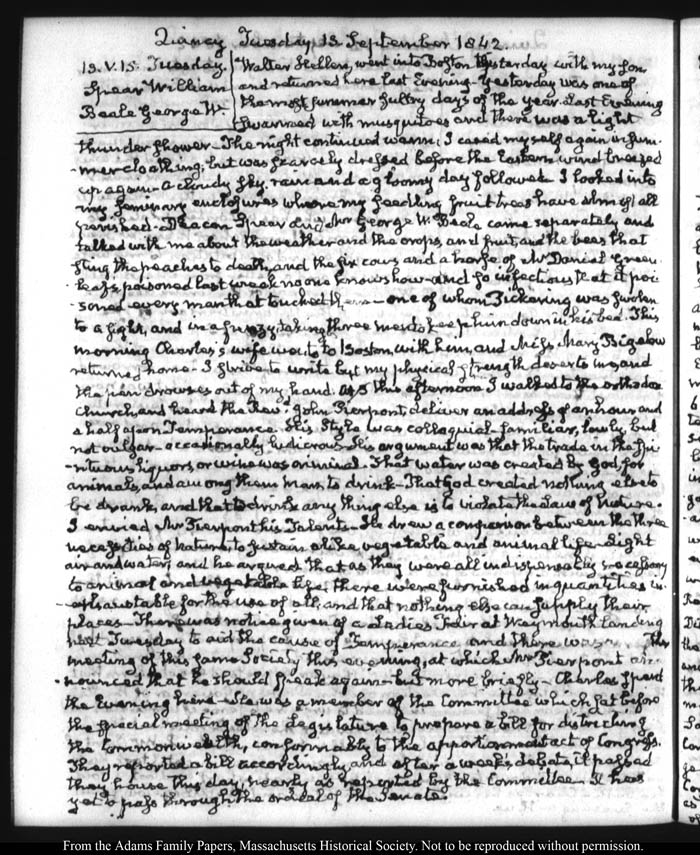 Quincy Tuesday 13 September 1842.
13. V. 15. Tuesday.
Spear William
Beale George W.
Walter Hellen, went into Boston Yesterday with my Son
and returned here last Evening. Yesterday was one of
the most summer sultry days of the year. Last Evening
swarmed with musquitoes and there was a light
thunder shower. The night continued warm; I cased myself again in sum-
-mer cloathing; but was scarcely dressed before the Eastern wind breezed
up again. A cloudy sky, rain and a gloomy day followed. I looked into
my seminary enclosures where my seedling fruit trees have almost all
perished. Deacon Spear and Mr George W. Beale came separately and
talked with me about the weather and the crops, and fruit, and the bees that
sting the peaches to death, and the six cows and a horse of Mr Daniel Green
leaf's poisoned last week no one knows how and so infectious that it poi-
soned every man that touched them - one of whom Pickering was swolen
to a sight, and in a frenzy, taking three men to keep him down in his bed. This
morning Charles's wife went to Boston, with him, and Miss Mary Bigelow
returned home - I strive to write but my physical strength deserts me, and
the pen drowses out of my hand. At 3 this afternoon I walked to the orthodox
Church, and heard the Revd. John Pierpont, deliver an address of an hour and
a half upon Temperance. His Style was colloquial familiar, lowly, but
not vulgar - occasionally ludicrous. His argument was that the trade in the spi-
-rituous liquors, or wine was criminal. That water was created by God for
animals, and among them man, to drink - That God created nothing else to
be drank, and that to drink any thing else is to violate the Law of Nature.
I envied Mr Pierpont his Talents - He drew a comparison between the three
necessities of nature to sustain alike vegetable and animal life - Light
air and water; and he argued that as they were all indispensably necessary
to animal and vegetable life, there were furnished in quantities in-
-exhaustable for the use of all, and that nothing else can supply their
places - There was notice given of a Ladies Fair at Weymouth landing
next Tuesday to aid the cause of Temperance and there was
meeting of this same Society this evening, at which Mr Pierpont an-
nounced that he should speak again - but more briefly - Charles spent
the Evening here - He was a member of the Committee which sat before
the special meeting of the Legislature to prepare a bill for districting
the Commonwealth, conformably to the apportionment act of Congress.
They reported a bill accordingly and after a week's debate, it passed
they house this day, nearly as reported by the Committee. It has
yet to pass through the ordeal of the Senate.
From the Adams Family Papers, Massachusetts Historical Society. Not to be reproduced without permission.